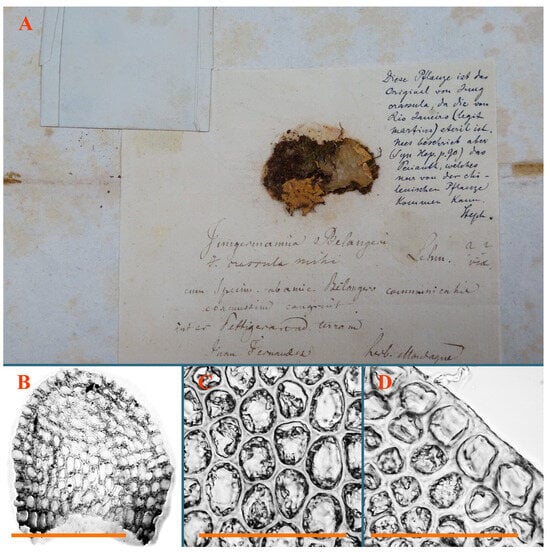 A
Diese Pflanze ist das
Original von Jung
crassula, da die von
Rio Janeiro (legit
Martius) steril ist.
Nees beschrieb aber
(Syn Hep. p. 90) das
Perianth, welches
nur von der chi-
lenischen Pflanze
kommen kann.
Steph.
Jungermannia Belangeri
J. crassula mihi Lehm.
cum specim. Belangero communicatis
congruit.
inter et terram
Juan Fernandez herb. Montagne
B
C
D